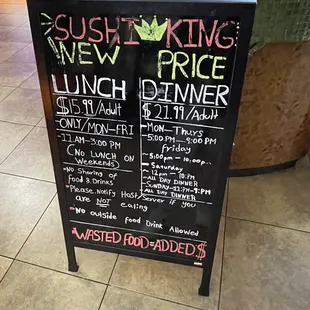 SUSHI KING
NEW PRICE
LUNCH
$15.99/Adult
ONLY/MON-FRI
11AM-3:00 PM
(NO LUNCH ON
WEEKENDS)
DINNER
$21.99/Adult
MON-Thurs
5:00 PM-9:00 PM
friday
5:00pm-10:00pm
Saturday
12pm-10pm
ALL DAY DINNER
SUNDAY-12PM-9PM
ALL DAY DINNER
No Sharing of
food & Drinks
Please Notify Host/Server if you
are NOT eating
No outside food Drink Allowed
WASTED FOOD=ADDED $